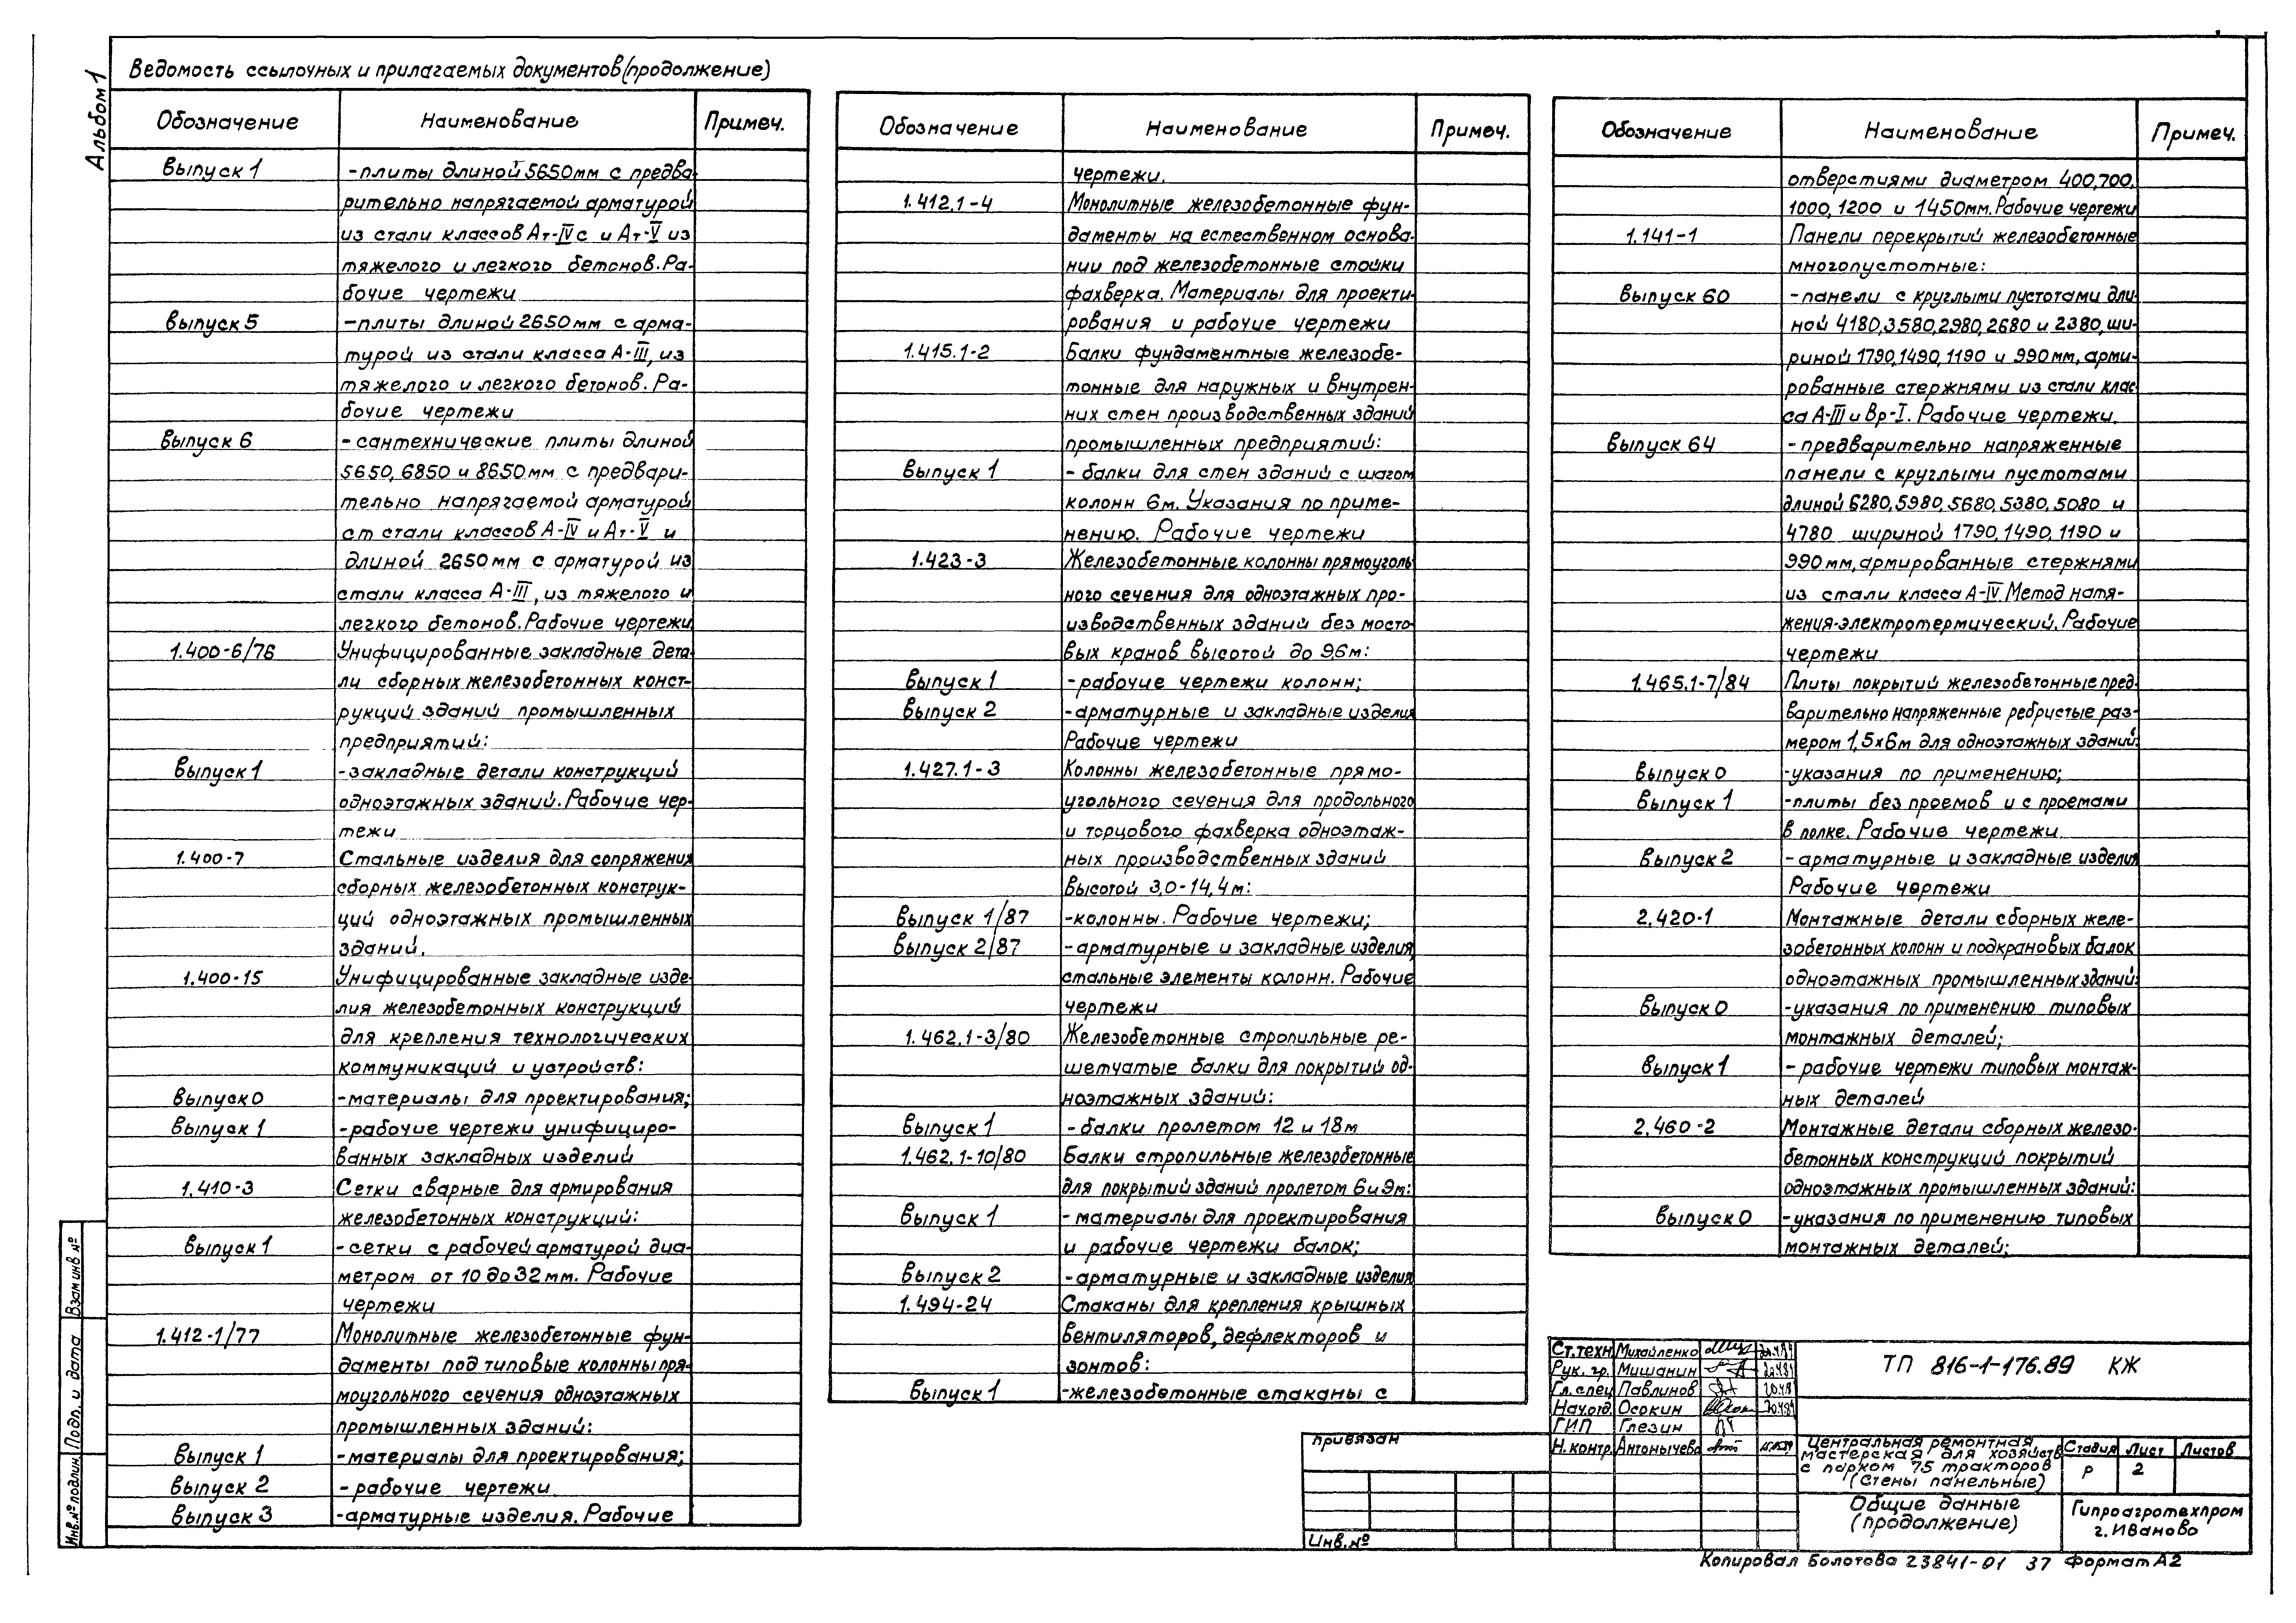 Альбом 1
Ведомость ссылочных и прилагаемых документов (продолжение)
Обозначение Наименование Примеч.
Выпуск 1 -плиты длиной 5650мм с предва-
рительно напрягаемой арматурой
из стали классов Ат-IVс и Ат-V из
тяжелого и легкого бетонов. Ра-
бочие чертежи
Выпуск 5 -плиты длиной 2650мм с арма-
турой из стали класса А-III, из
тяжелого и легкого бетонов. Ра-
бочие чертежи
Выпуск 6 -сантехнические плиты длиной
5650, 6850 и 8650мм с предвари-
тельно напрягаемой арматурой
ст стали классов А-IV и Ат-V и
длиной 2650мм с арматурой из
стали класса А-III, из тяжелого и
легкого бетонов. Рабочие чертежи
1.400-6/76 Унифицированные закладные дета-
ли сборных железобетонных конст-
рукций зданий промышленных
предприятий:
Выпуск 1 -закладные детали конструкций
одноэтажных зданий. Рабочие чер-
тежи
1.400-7 Стальные изделия для сопряжения
сборных железобетонных конструк-
ций одноэтажных промышленных
зданий.
1.400-15 Унифицированные закладные изде-
лия железобетонных конструкций
для крепления технологических
коммуникаций и устройств:
Выпуск 0 -материалы для проектирования;
Выпуск 1 -рабочие чертежи унифициро-
ванных закладных изделий
1.410-3 Сетки сварные для армирования
железобетонных конструкций:
Выпуск 1 -сетки с рабочей арматурой диа-
метром от 10 до 32мм. Рабочие
чертежи
1.412-1/77 Монолитные железобетонные фун-
даменты под типовые колонны пря-
моугольного сечения одноэтажных
промышленных зданий:
Выпуск 1 -материалы для проектирования;
Выпуск 2 -рабочие чертежи
Выпуск 3 -арматурные изделия. Рабочие
Обозначение Наименование Примеч.
чертежи.
1.412.1-4 Монолитные железобетонные фун-
даменты на естественном основа-
нии под железобетонные стойки
фахверка. Материалы для проекти-
рования и рабочие чертежи
1.415.1-2 Балки фундаментные железобе-
тонные для наружных и внутрен-
них стен производственных зданий
промышленных предприятий:
Выпуск 1 -балки для стен зданий с шагом
колонн 6м. Указания по приме-
нению. Рабочие чертежи
1.423-3 Железобетонные колонны прямоуголь
ного сечения для одноэтажных про-
изводственных зданий без мосто-
вых кранов высотой до 9,6м:
Выпуск 1 -рабочие чертежи колонн;
Выпуск 2 -арматурные и закладные изделия
Рабочие чертежи
1.427.1-3 Колонны железобетонные прямо-
угольного сечения для продольного
и торцового фахверка одноэтаж-
ных производственных зданий
высотой 3,0-14,4м:
Выпуск 1/87 -колонны. Рабочие чертежи;
Выпуск 2/87 -арматурные и закладные изделия,
стальные элементы колонн. Рабочие
чертежи
1.462.1-3/80 Железобетонные стропильные ре-
шетчатые балки для покрытий од-
ноэтажных зданий:
Выпуск 1 -балки пролетом 12 и 18м
1.462.1-10/80 Балки стропильные железобетонные
для покрытий зданий пролетом 6 и 9м:
Выпуск 1 -материалы для проектирования
и рабочие чертежи балок;
Выпуск 2 -арматурные и закладные изделия
1.494-24 Стаканы для крепления крышных
вентиляторов, дефлекторов и
зонтов:
Выпуск 1 -железобетонные стаканы с
Обозначение Наименование Примеч.
отверстиями диаметром 400,700,
1000, 1200 и 1450мм. Рабочие чертежи
1.141-1 Панели перекрытий железобетонные
многопустотные:
Выпуск 60 -панели с круглыми пустотами дли-
ной 4180,3580,2980,2680 и 2380, ши-
риной 1790,1490,1190 и 990мм, арми-
рованные стержнями из стали клас-
са А-III и Вр-I. Рабочие чертежи.
Выпуск 64 -предварительно напряженные
панели с круглыми пустотами
длиной 6280,5980,5680,5380,5080 и
4780 шириной 1790,1490,1190 и
990мм, армированные стержнями
из стали класса А-IV. Метод натя-
жения-электротермический. Рабочие
чертежи
1.465.1-7/84 Плиты покрытий железобетонные пред-
варительно напряженные ребристые раз-
мером 1,5х6м для одноэтажных зданий:
Выпуск 0 -указания по применению;
Выпуск 1 -плиты без проемов и с проемами
в полке. Рабочие чертежи
Выпуск 2 -арматурные и закладные изделия
Рабочие чертежи
2.420-1 Монтажные детали сборных желе-
зобетонных колонн и подкрановых балок
одноэтажных промышленных зданий:
Выпуск 0 -указания по применению типовых
монтажных деталей;
Выпуск 1 -рабочие чертежи типовых монтаж-
ных деталей
2.460-2 Монтажные детали сборных железо-
бетонных конструкций покрытий
одноэтажных промышленных зданий:
Выпуск 0 -указания по применению типовых
монтажных деталей;
Взам инв №
Подп. и дата
Инв.№ подлин.
Ст.техн. Михайленко
Рук. гр. Мишанин
Гл.спец Павлинов
Нач.отд. Осокин
ГИП Глезин
Н.контр. Антонычева
ТП 816-1-176.89 КЖ
Центральная ремонтная
мастерская для хозяйств
с парком 75 тракторов
(стены панельные)
Стадия Лист Листов
Р 2
Общие данные
(продолжение)
Гипроагротехпром
г. Иваново
Привязан
Инв.№
Копировал Болотова 23841-01 37 Формат А2